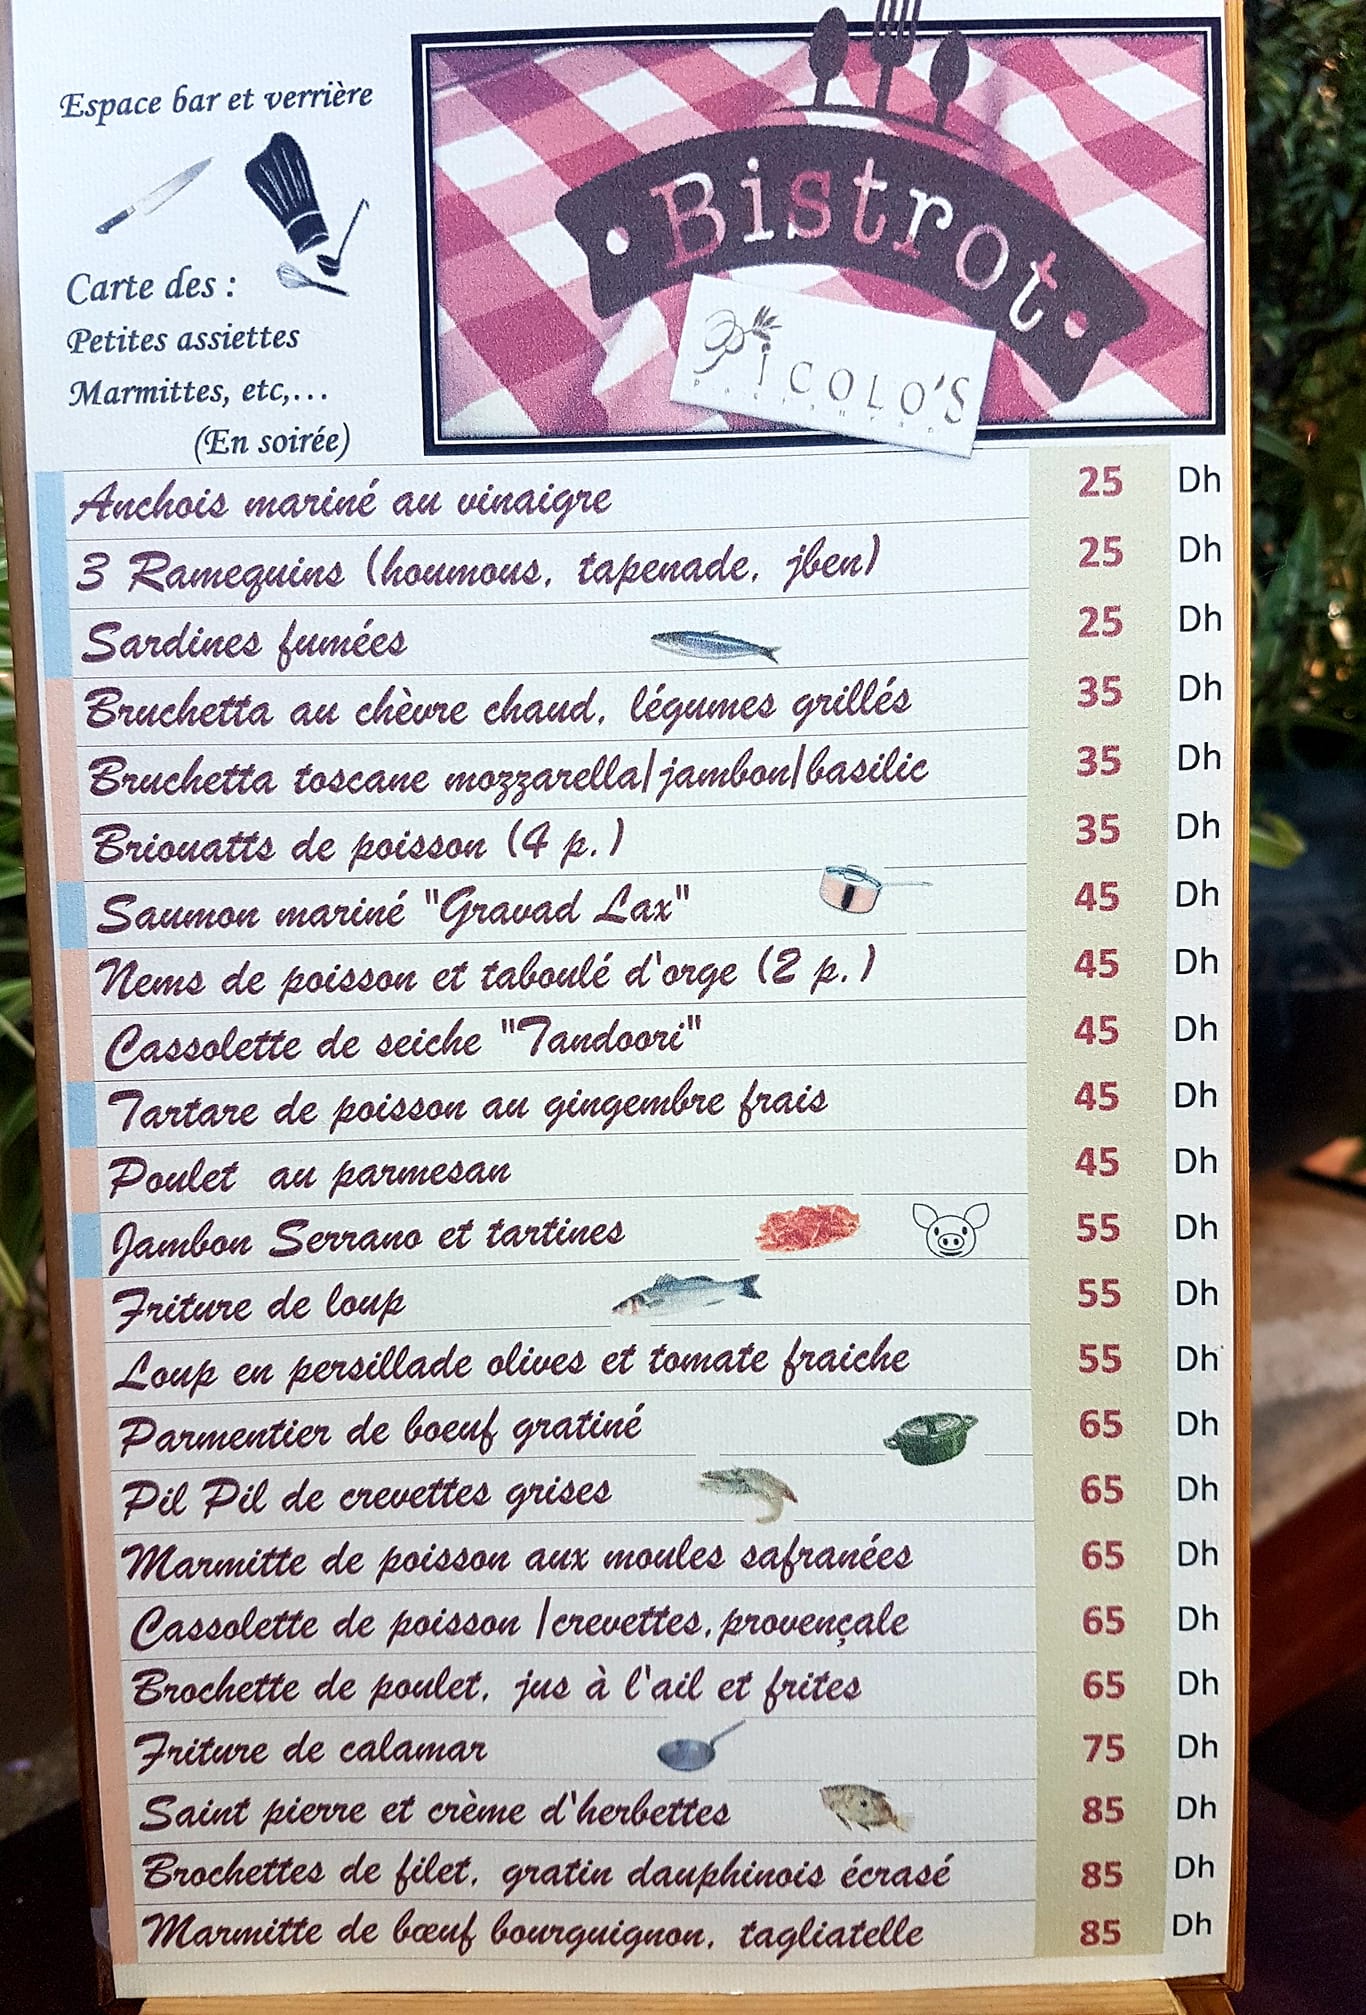 Espace bar et verrière
Carte des :
Petites assiettes
Marmittes, etc,...
(En soirée)
Bistrot
PICOLO'S
Anchois mariné au vinaigre 25 Dh
3 Ramequins (houmous, tapenade, jben) 25 Dh
Sardines fumées 25 Dh
Bruchetta au chèvre chaud, légumes grillés 35 Dh
Bruchetta toscane mozzarella/jambon/basilic 35 Dh
Briouatts de poisson (4 p.) 35 Dh
Saumon mariné "Gravad Lax" 45 Dh
Nems de poisson et taboulé d'orge (2 p.) 45 Dh
Cassolette de seiche "Tandoori" 45 Dh
Tartare de poisson au gingembre frais 45 Dh
Poulet au parmesan 45 Dh
Jambon Serrano et tartines 55 Dh
Friture de loup 55 Dh
Loup en persillade olives et tomate fraiche 55 Dh
Parmentier de boeuf gratiné 65 Dh
Pil Pil de crevettes grises 65 Dh
Marmitte de poisson aux moules safranées 65 Dh
Cassolette de poisson /crevettes, provençale 65 Dh
Brochette de poulet, jus à l'ail et frites 65 Dh
Friture de calamar 75 Dh
Saint pierre et crème d'herbettes 85 Dh
Brochettes de filet, gratin dauphinois écrasé 85 Dh
Marmitte de bœuf bourguignon, tagliatelle 85 Dh